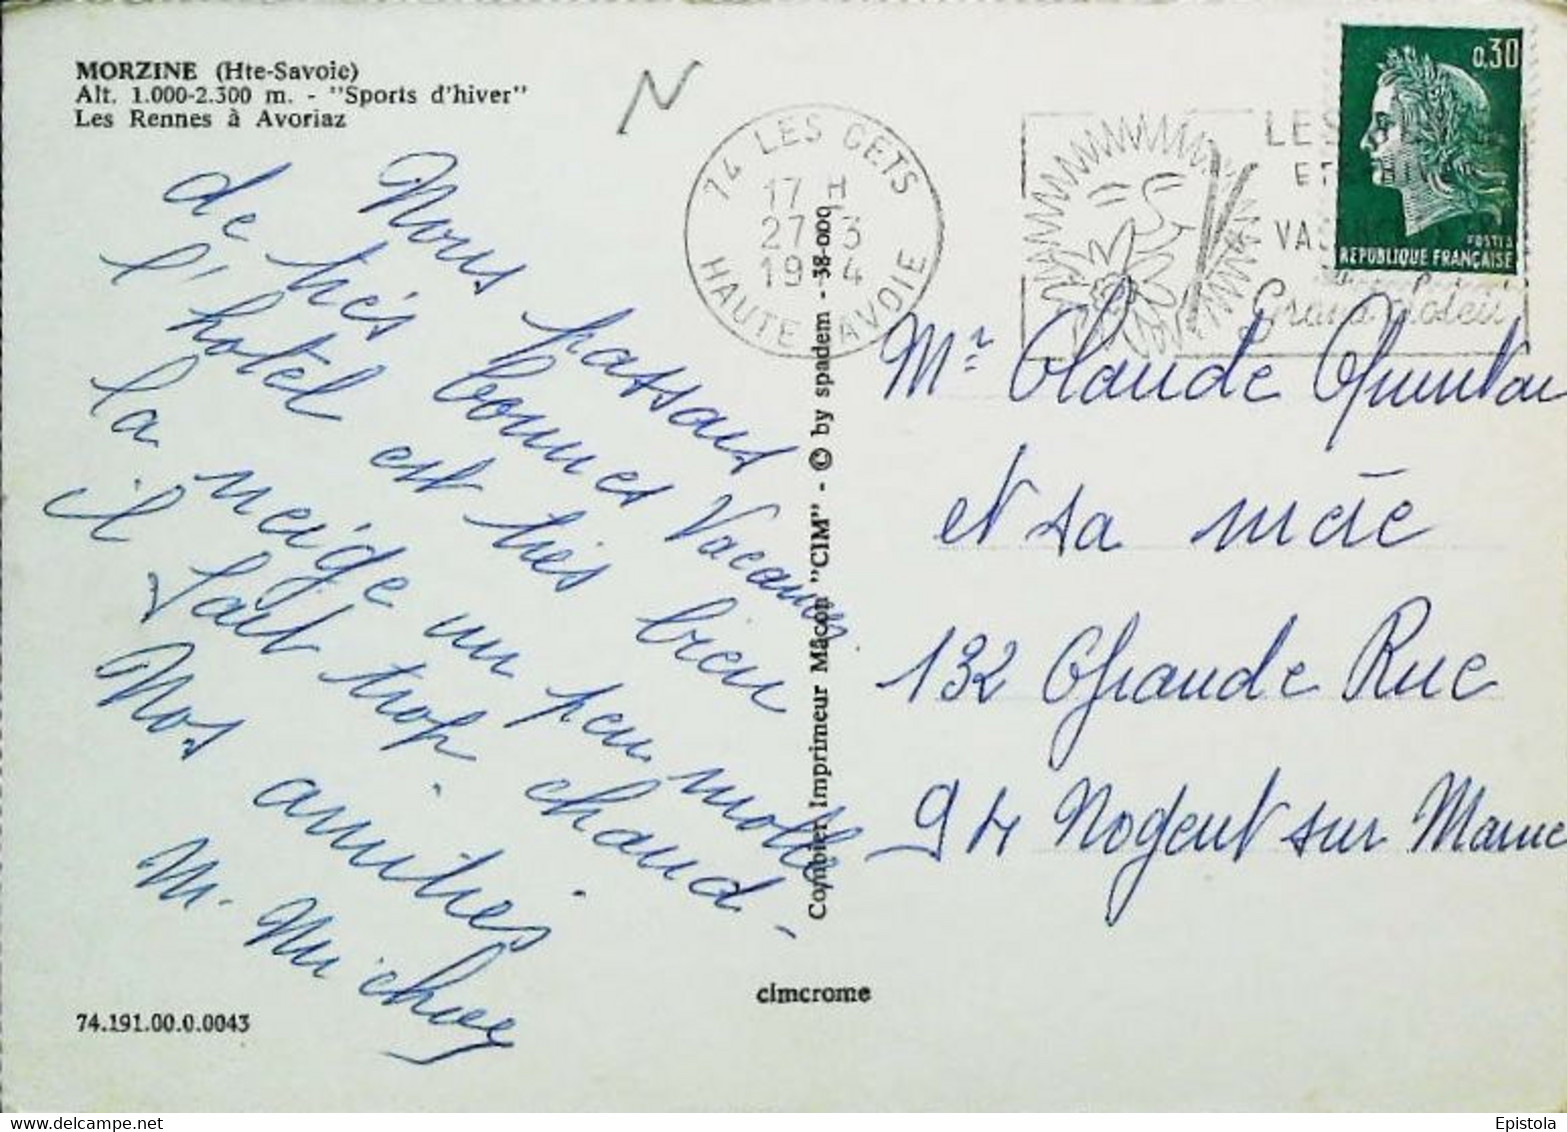 MORZINE (Hte-Savoie)
Alt. 1.000-2.300 m. - "Sports d'hiver"
Les Rennes à Avoriaz
N
74 LES GETS
17 H
27 3
19 4
HAUTE AVOIE
LES
ET
VA
Grand Soleil
0,30
POSTES
REPUBLIQUE FRANÇAISE
Nous passons
de très bonnes Vacances
l'hotel est très bien
la neige un peu molle
il fait trop chaud -
Nos amitiés
M. Michog
Combier Imprimeur Mâcon "CIM" - © by spadem - 38-000
Mr Claude
et sa mère
132 Grande Rue
94 Nogent sur Marne
cimcrome
74.191.00.0.0043
Epistola